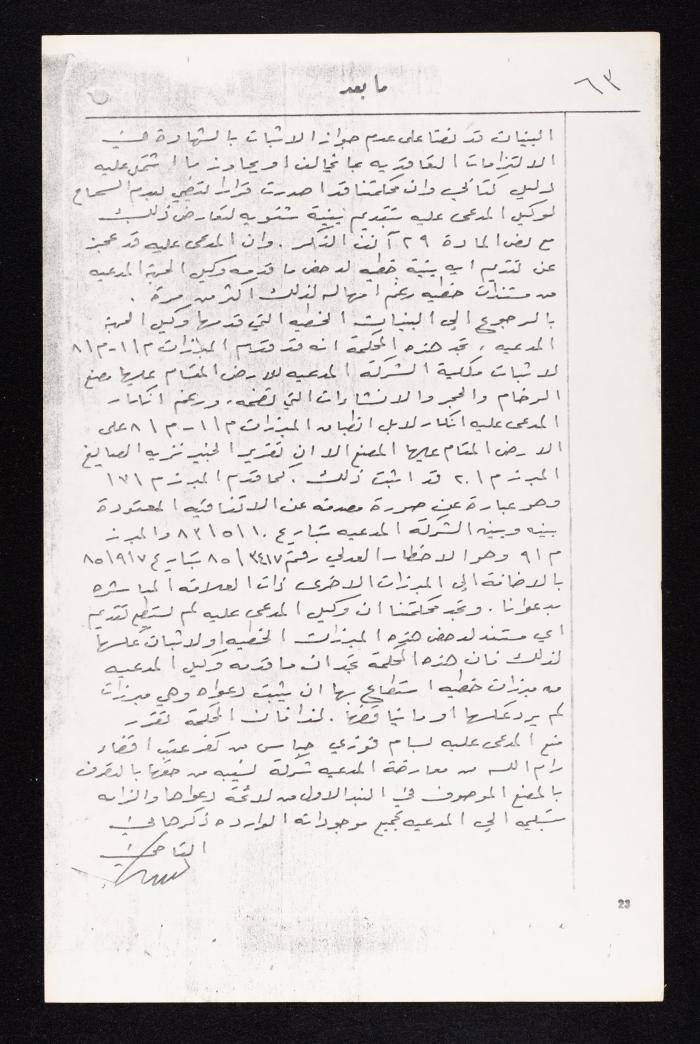 ٦٣
ما بعد
البينات قد نصتا على عدم جواز الاثبات بالشهادة في
الالتزامات التعاقديه بما يخالف او يجاوز ما اشتمل عليه
دليل كتابي وان محكمتنا قد اصدرت قرارا يقضي بعدم السماح
لوكيل المدعى عليه بتقديم بينة شفويه لتعارض ذلك
مع نص المادة ٢٩ آنف الذكر . وان المدعى عليه قد عجز
عن تقديم ايه بينة خطيه لدحض ما قدمه وكيل الجهة المدعيه
من مستندات خطيه رغم امهاله لذلك اكثر من مرة .
بالرجوع الى البينات الخطيه التي قدمها وكيل الجهة
المدعيه ، تجد هذه المحكمة انه قد قدم المبرزات م/١ - م/٨
لاثبات ملكية الشركة المدعيه للارض المقام عليها مصنع
الرخام والحجر والانشاءات التي تخصه ، ورغم انكار
المدعى عليه انكار لابل انطباق المبرزات م/١ - م/٨ على
الارض المقام عليها المصنع الا ان تقرير الخبير نزيه الصايغ
المبرز م/٢٠ قد اثبت ذلك . كما قدم المبرز م/١٧
وهو عبارة عن صورة مصدقه عن الاتفاقيه المعقودة
بينه وبين الشركة المدعيه بتاريخ ١٠/٥/٨٣ والمبرز
م/٩ وهو الاخطار العدلي رقم ٣٤١٧/٨٥ بتاريخ ٨٥/٩/٧
بالاضافة الى المبرزات الاخرى ذات العلاقه المباشره
بدعوانا . وتجد محكمتنا ان وكيل المدعى عليه لم يستطع تقديم
اي مستند لدحض هذه المبرزات الخطيه او لاثبات عكسها
لذلك فان هذه المحكمة تجد ان ما قدمه وكيل المدعيه
من مبرزات خطيه استطاع بها ان يثبت دعواه وهي مبرزات
لم يرد عكسها او ما يناقضها . لذا فان المحكمة تقرر
منع المدعى عليه بسام فوزي من كفر عقب قضاء
رام الله من معارضة المدعيه شركة نسيبه من حقها بالتصرف
بالمصنع الموصوف في البند الاول من لائحة دعواها والزامه
بتسليم الى المدعيه جميع موجوداته الوارده ذكرها في
القاضي
23